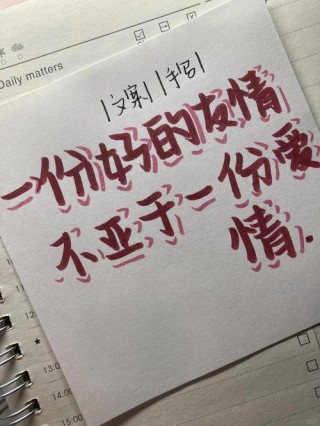 Daily matters
|文案| |手写|
一份好的友情
不亚于一份爱
情.
13:0
14:00
15:00